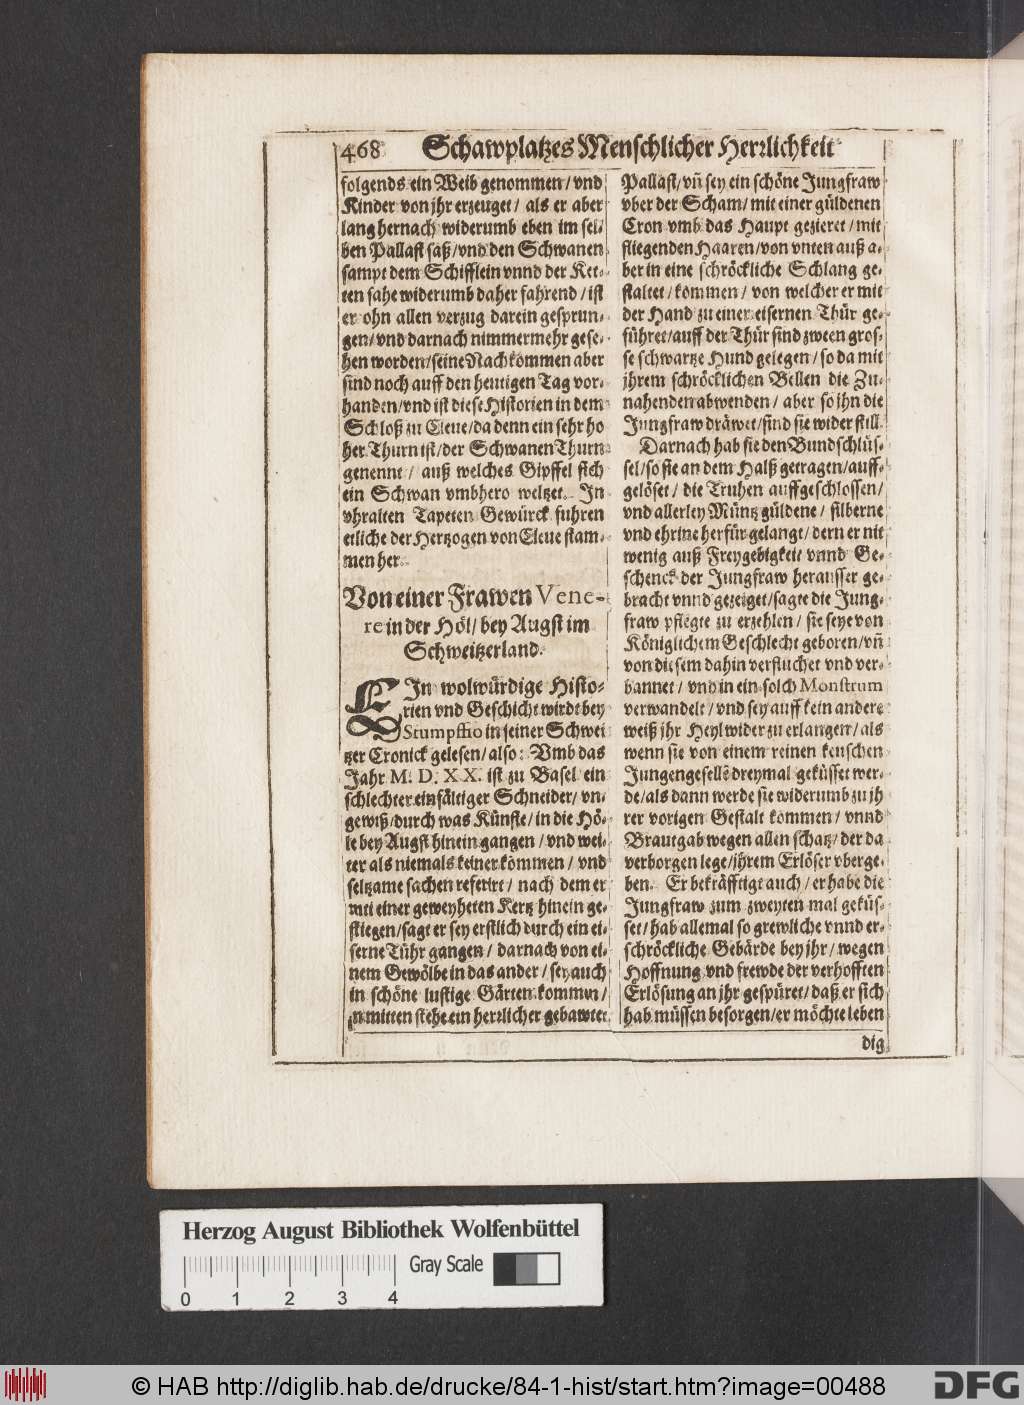 468 Schawplatzes Menschlicher Herrlichkeit
folgends ein Weib genommen / vnd
Kinder von jhr erzeuget / als er aber
lang hernach widerumb eben im sel-
ben Pallast saß / vnd den Schwanen
sampt dem Schifflein vnnd der Ket-
ten sahe widerumb daher fahrend / ist
er ohn allen verzug darein gesprun-
gen / vnd darnach nimmermehr gese-
hen worden / seine Nachkommen aber
sind noch auff den heutigen Tag vor-
handen / vnd ist diese Historien in dem
Schloß zu Cleue / da denn ein sehr ho
her Thurn ist / der Schwanen Thurn
genennt / auß welches Gipffel sich
ein Schwan vmbhero weltzet. In
vhralten Tapeten Gewürck fuhren
etliche der Hertzogen von Cleue stam-
men her.
Von einer Frawen Vene-
re in der Höl / bey Augst im
Schweitzerland.
EIn wolwürdige Histo-
rien vnd Geschicht wirdt bey
Stumpffio in seiner Schwei
tzer Cronick gelesen / also: Vmb das
Jahr M. D. XX. ist zu Basel ein
schlechter einfältiger Schneider / vn-
gewiß / durch was Künste / in die Hö-
le bey Augst hinein gangen / vnd wei-
ter als niemals keiner kommen / vnd
seltzame sachen referirt / nach dem er
mit einer geweyheten Kertz hinein ge-
stiegen / sagt er sey erstlich durch ein ei-
serne Tühr gangen / darnach von ei-
nem Gewölbe in das ander / sey auch
in schöne lustige Gärten kommen /
in mitten stehe ein herrlicher gebawter
Pallast / vñ sey ein schöne Jungfraw
vber der Scham / mit einer güldenen
Cron vmb das Haupt gezieret / mit
fliegenden Haaren / von vnten auß a-
ber in eine schröckliche Schlang ge-
staltet / kommen / von welcher er mit
der Hand zu einer eisernen Thür ge-
führet / auff der Thür sind zween gros-
se schwartze Hund gelegen / so da mit
jhrem schröcklichen Bellen die Zu-
nahenden abwenden / aber so jhn die
Jungfraw dräwet / sind sie wider still.
Darnach hab sie den Bundschlüs-
sel / so sie an dem Halß getragen / auff-
gelöset / die Truhen auffgeschlossen /
vnd allerley Müntz güldene / silberne
vnd ehrine herfür gelangt / dern er nit
wenig auß Freygebigkeit vnnd Ge-
schenck der Jungfraw herausser ge-
bracht vnnd gezeiget / sagte die Jung-
fraw pflegte zu erzehlen / sie seye von
Königlichem Geschlecht geboren / vñ
von diesem dahin verfluchet vnd ver-
bannet / vnd in ein solch Monstrum
verwandelt / vnd sey auff kein andere
weiß jhr Heyl wider zu erlangen / als
wenn sie von einem reinen keuschen
Jungengesellẽ dreymal geküsset wer-
de / als dann werde sie widerumb zu jh
rer vorigen Gestalt kommen / vnnd
Brautgab wegen allen schatz / der da
verborgen lege / jhrem Erlöser vberge-
ben. Er bekräfftigt auch / er habe die
Jungfraw zum zweyten mal geküs-
set / hab allemal so grewliche vnnd er-
schröckliche Gebärde bey jhr / wegen
Hoffnung vnd frewde der verhofften
Erlösung an jhr gespüret / daß er sich
hab müssen besorgen / er möchte leben
dig
Herzog August Bibliothek Wolfenbüttel
Gray Scale
0 1 2 3 4
© HAB http://diglib.hab.de/drucke/84-1-hist/start.htm?image=00488
DFG